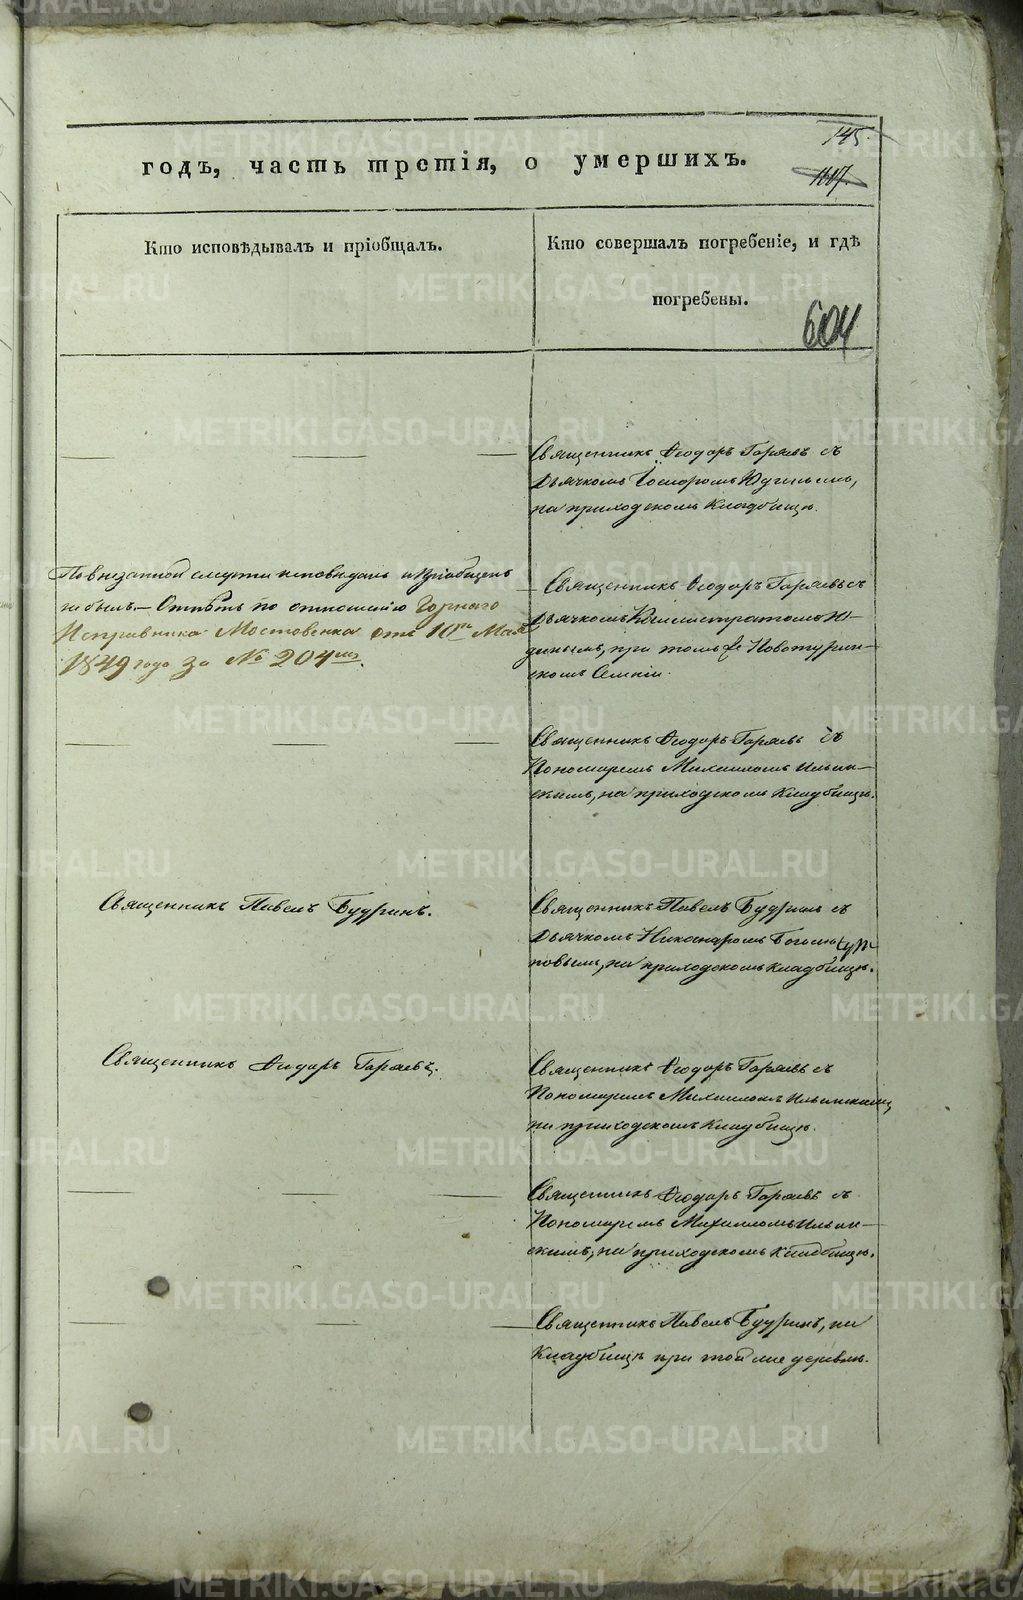 145.
годъ, часть третія, о умершихъ.
1117.
Кто исповѣдывалъ и пріобщалъ.
Кто совершалъ погребеніе, и гдѣ
погребены.
604
Священникъ Ѳеодоръ Горяевъ съ
Дьячкомъ
на приходскомъ Кладбищѣ.
По внезапной смерти исповѣданъ и пріобщенъ
не былъ. — Отпѣтъ по отношенію Горнаго
Исправника Мостовенка отъ 10го Мая
1849 года за № 204мъ.
Священникъ Ѳеодоръ Горяевъ съ
Дьячкомъ Каллистратомъ Ю-
динымъ, при томъ же Новотурин-
скомъ
Священникъ Ѳеодоръ Горяевъ съ
Пономаремъ Михаиломъ Ильин-
скимъ, на приходскомъ Кладбищѣ.
Священникъ Павелъ Будринъ.
Священникъ Павелъ Будринъ съ
Дьячкомъ Никаноромъ
на приходскомъ кладбищѣ.
Священникъ Ѳеодоръ Горяевъ.
Священникъ Ѳеодоръ Горяевъ съ
Пономаремъ Михаиломъ Ильинскимъ
на приходскомъ Кладбищѣ.
Священникъ Ѳеодоръ Горяевъ съ
Пономаремъ Михаиломъ Ильин-
скимъ, на приходскомъ Кладбищѣ.
Священникъ Павелъ Будринъ, на
Кладбищѣ при той же деревнѣ.
METRIKI.GASO-URAL.RU